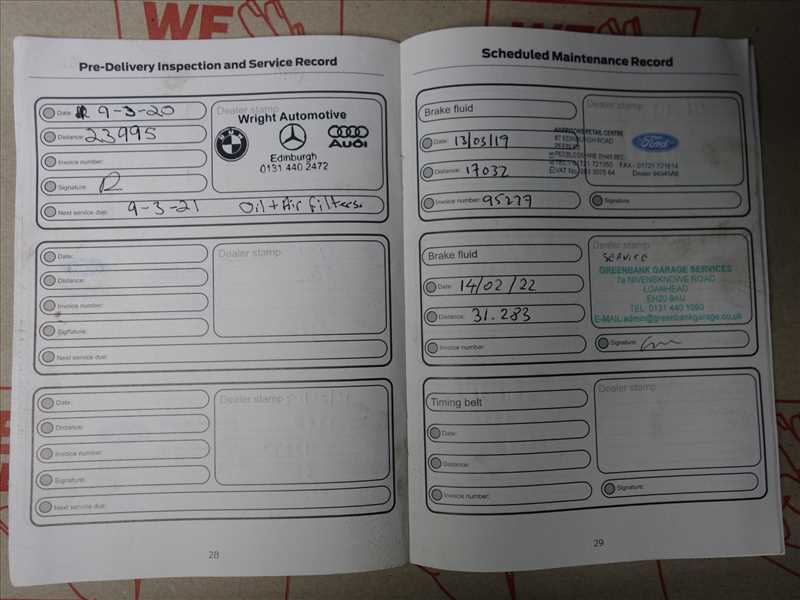 WE
WE
Pre-Delivery Inspection and Service Record
Date: 9-3-20
Distance: 23995
Invoice number:
Signature: R
Next service due: 9-3-21 Oil + Air filters.
Dealer stamp
Wright Automotive
BMW
Audi
Edinburgh
0131 440 2472
Date:
Distance:
Invoice number:
Signature:
Next service due:
Dealer stamp
Date:
Distance:
Invoice number:
Signature:
Next service due:
Dealer stamp
28
Scheduled Maintenance Record
Brake fluid
Date: 13/03/19
Distance: 17032
Invoice number: 95277
Dealer stamp
RETAIL CENTRE
EDINBURGH ROAD
PEEBLES
Ford
Signature:
Brake fluid
Date: 14/02/22
Distance: 31.283
Invoice number:
Dealer stamp
SERVICE
GREENBANK GARAGE SERVICES
7a NIVENSKNOWE ROAD
LOANHEAD
EH20 9AU
TEL: 0131 440
E-MAIL:admin@greenbankgarage.co.uk
Signature:
Timing belt
Date:
Distance:
Invoice number:
Dealer stamp
Signature:
29